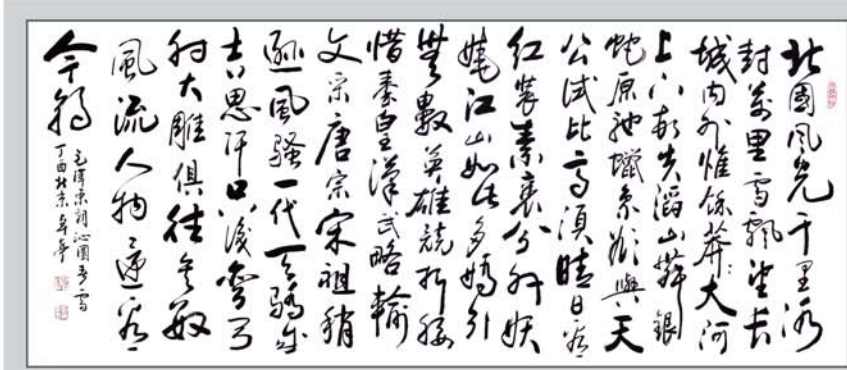 北國風光千里冰
封萬里雪飄望長
城内外惟餘莽〻大河
上下頓失滔〻山舞銀
蛇原馳蠟象欲與天
公試比高須晴日看
紅裝素裹分外妖
嬈江山如此多嬌引
無數英雄競折腰
惜秦皇漢武略輸
文采唐宗宋祖稍
遜風騷一代天驕成
吉思汗只識彎弓
射大雕俱往矣數
風流人物還看
今朝
毛澤東詞沁園春雪
丁酉北京